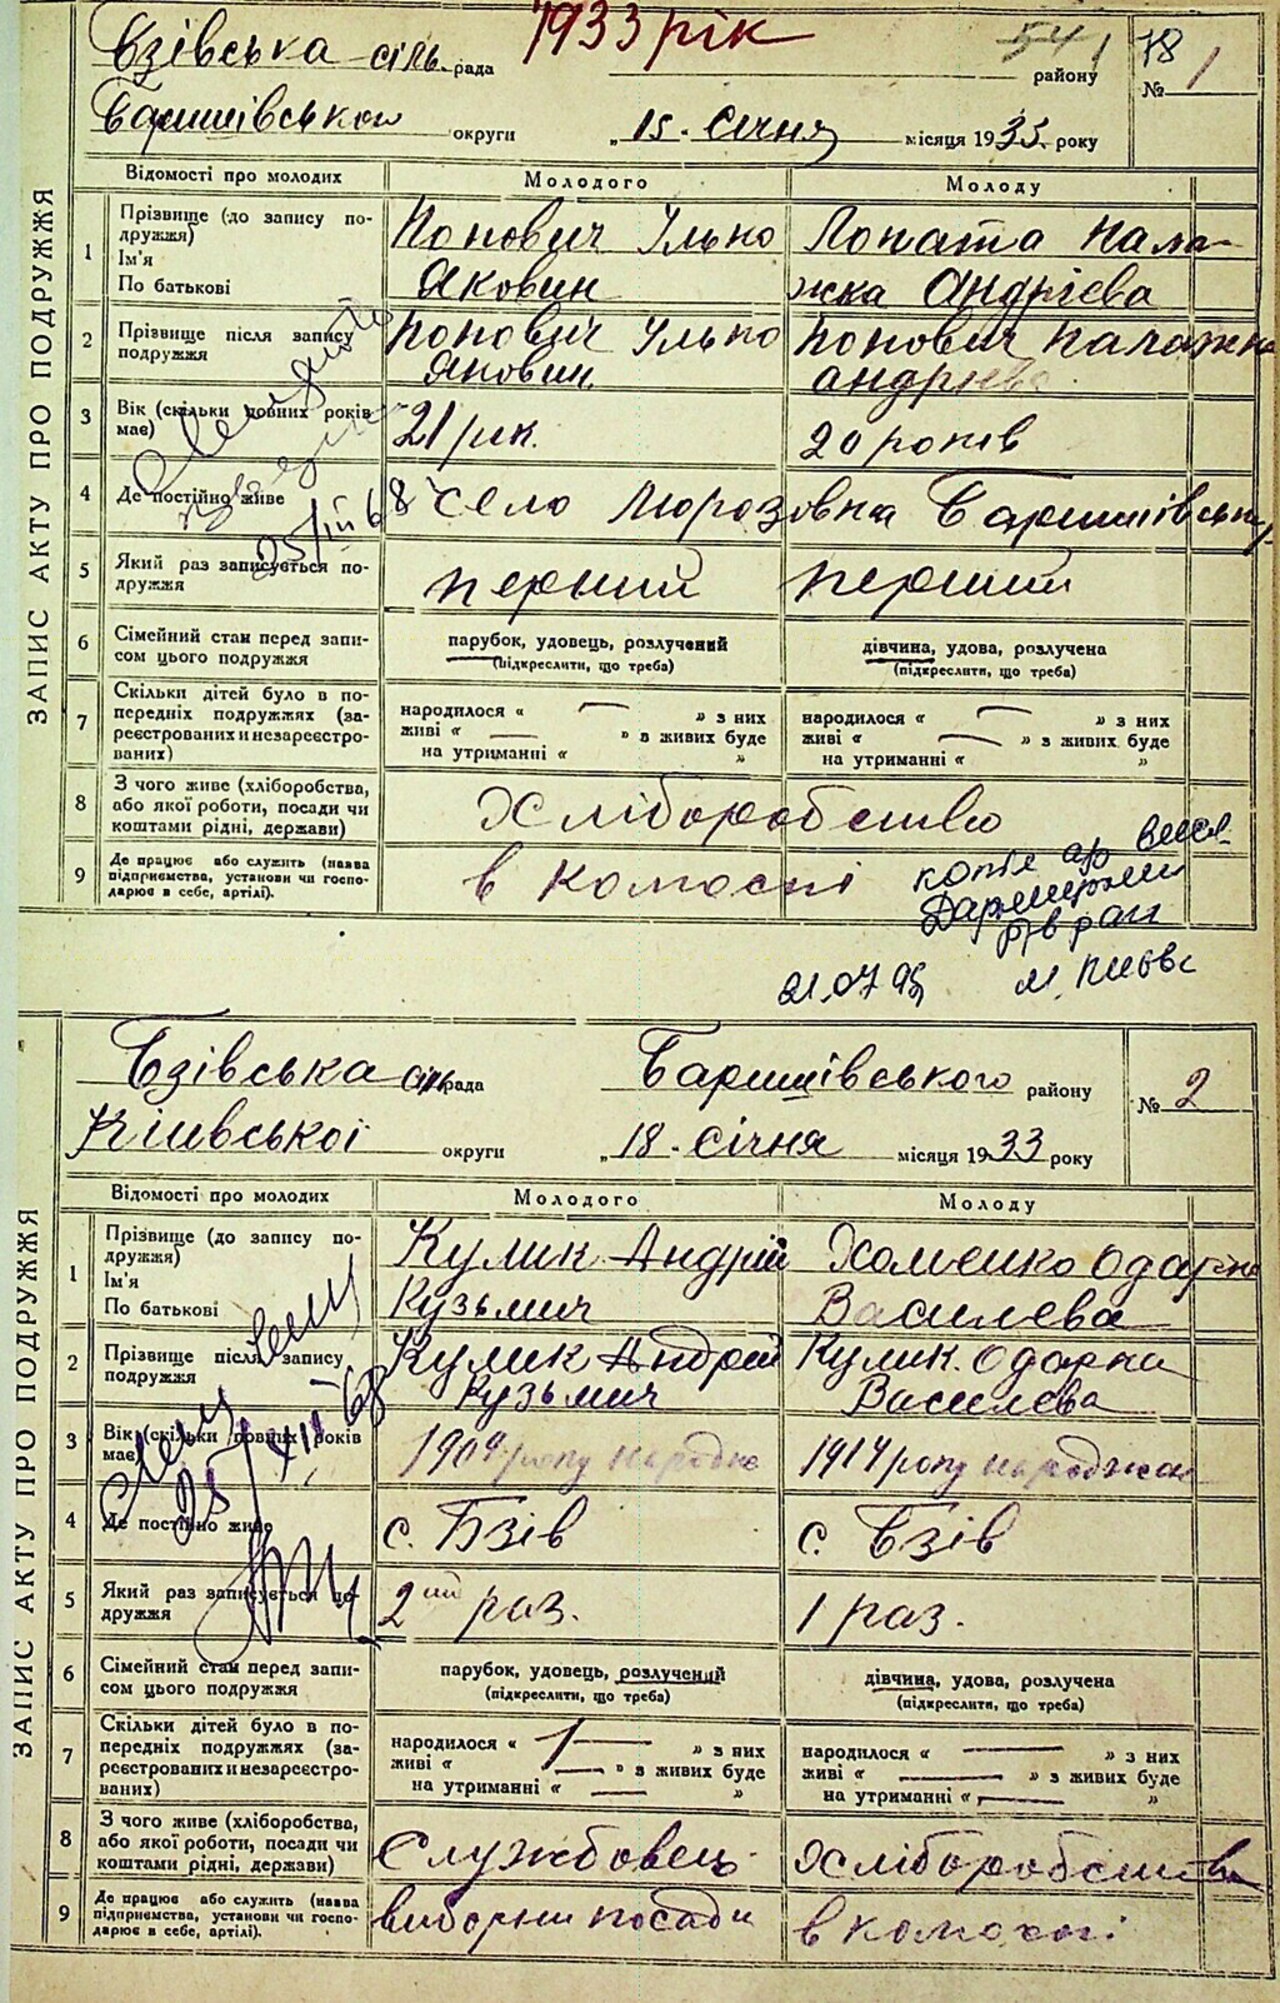 1933 рік
Бзівська сіль. рада 54 1 району 78
№ 1
Баришівськой округи „15. Січня місяця 1933. року
ЗАПИС АКТУ ПРО ПОДРУЖЖЯ
Відомості про молодих Молодого Молоду
1 Прізвище (до запису по-
дружжя)
Ім'я
По батькові
Попович Ілько
Якович
Лопата Пала-
жка Андрієва
2 Прізвище після запису
подружжя
Попович Ілько
Якович
Попович Палажка
Андрієва
3 Вік (скільки повних років
має)
21 рік.
20 років
4 Де постійно живе
село Морозовка Баришівськ
25/III 68
5 Який раз записується по-
дружжя
перший перший
6 Сімейний стан перед запи-
сом цього подружжя
парубок, удовець, розлучений
(підкреслити, що треба)
дівчина, удова, розлучена
(підкреслити, що треба)
7 Скільки дітей було в по-
передніх подружжях (за-
реєстрованих и незареєстро-
ваних)
народилося « — » з них
живі « — » з живих буде
на утриманні « »
народилося « — » з них
живі « — » з живих буде
на утриманні « »
8 З чого живе (хліборобства,
або якої роботи, посади чи
коштами рідні, держави)
Хліборобство
9 Де працює або служить (назва
підприємства, установи чи госпо-
дарює в себе, артілі).
в колгоспі
копія
21.07.95 м. Києва
Бзівська сіль рада Баришівського району № 2
Київської округи „18. Січня місяця 1933 року
ЗАПИС АКТУ ПРО ПОДРУЖЖЯ
Відомості про молодих Молодого Молоду
1 Прізвище (до запису по-
дружжя)
Ім'я
По батькові
Кулик Андрій
Кузьмич
Хоменко Одарка
Василева
2 Прізвище після запису
подружжя
Кулик Андрій
Кузьмич
Кулик. Одарка
Василева
3 Вік (скільки повних років
має)
1909 року народже
1914 року народжен
4 Де постійно живе
с. Бзів
с. Бзів
5 Який раз записується по-
дружжя
2ий раз.
1 раз.
6 Сімейний стан перед запи-
сом цього подружжя
парубок, удовець, розлучений
(підкреслити, що треба)
дівчина, удова, розлучена
(підкреслити, що треба)
7 Скільки дітей було в по-
передніх подружжях (за-
реєстрованих и незареєстро-
ваних)
народилося « 1 — » з них
живі « — » з живих буде
на утриманні « — »
народилося « — » з них
живі « — » з живих буде
на утриманні « — »
8 З чого живе (хліборобства,
або якої роботи, посади чи
коштами рідні, держави)
Службовець
Хліборобства
9 Де працює або служить (назва
підприємства, установи чи госпо-
дарює в себе, артілі).
виборни посади
в колгоспі